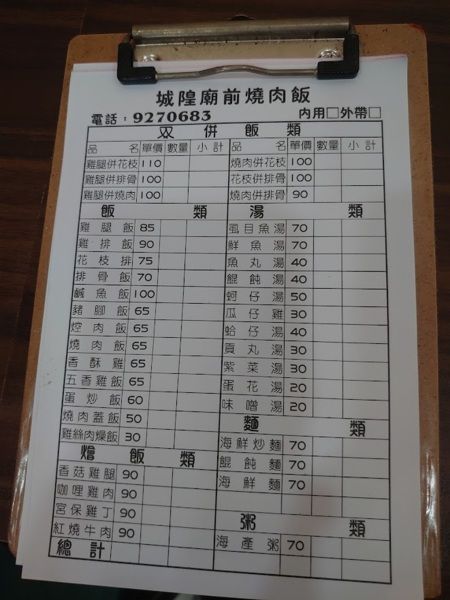 城隍廟前燒肉飯
電話：9270683 內用□外帶□
双併飯類
品名 單價 數量 小計 品名 單價 數量 小計
雞腿併花枝 110 燒肉併花枝 100
雞腿併排骨 100 花枝併排骨 100
雞腿併燒肉 100 燒肉併排骨 90
飯類 湯類
雞腿飯 85 虱目魚湯 70
雞排飯 90 鮮魚湯 70
花枝排 75 魚丸湯 40
排骨飯 70 餛飩湯 40
鹹魚飯 100 蚵仔湯 50
豬腳飯 65 瓜仔雞 30
焢肉飯 65 蛤仔湯 40
燒肉飯 65 貢丸湯 30
香酥雞 65 紫菜湯 30
五香雞飯 65 蛋花湯 20
蛋炒飯 60 味噌湯 20
燒肉蓋飯 50 麵類
雞絲肉燥飯 30 海鮮炒麵 70
燴飯類 餛飩麵 70
香菇雞腿 90 海鮮麵 70
咖哩雞肉 90
宮保雞丁 90 粥類
紅燒牛肉 90 海產粥 70
總計